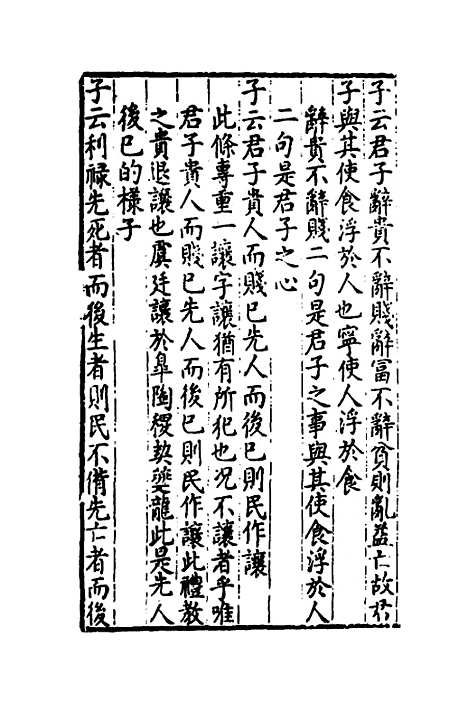 子云君子辭貴不辭賤辭冨不辭貧則亂益亡故君
子與其使食浮於人也寧使人浮於食
辭貴不辭賤二句是君子之事與其使食浮於人
二句是君子之心
子云君子貴人而賤已先人而後已則民作讓
此條專重一讓字讓猶有所犯也况不讓者乎唯
君子貴人而賤已先人而後已則民作讓此禮教
之貴退讓也虞廷讓於臯陶稷契夔龍此是先人
後已的樣子
子云利祿先死者而後生者則民不偝先亡者而後